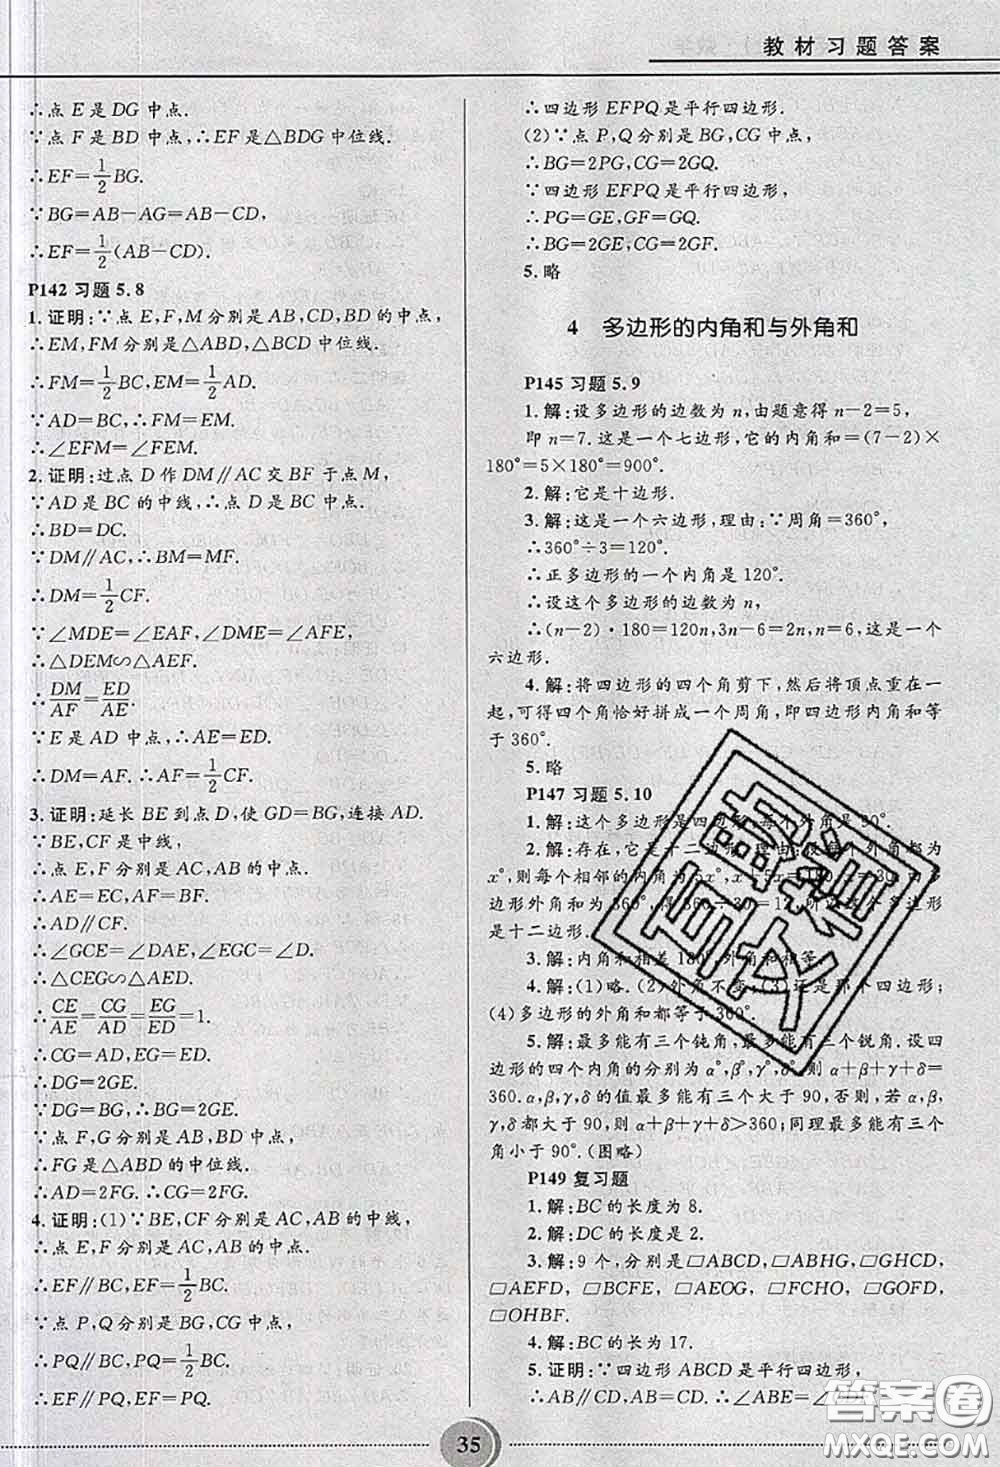 教材习题答案
∴点 E 是 DG 中点.
∵点 F 是 BD 中点,∴EF 是△BDG 中位线.
∴EF=1/2 BG.
∵BG=AB-AG=AB-CD,
∴EF=1/2(AB-CD).
P142 习题 5.8
1. 证明:∵点 E,F,M 分别是 AB,CD,BD 的中点,
∴EM,FM 分别是△ABD,△BCD 中位线.
∴FM=1/2 BC,EM=1/2 AD.
∵AD=BC,∴FM=EM.
∴∠EFM=∠FEM.
2. 证明:过点 D 作 DM∥AC 交 BF 于点 M,
∵AD 是 BC 的中线,∴点 D 是 BC 中点.
∴BD=DC.
∵DM∥AC,∴BM=MF.
∴DM=1/2 CF.
∵∠MDE=∠EAF,∠DME=∠AFE,
∴△DEM∽△AEF.
∴DM/AF=ED/AE.
∵E 是 AD 中点,∴AE=ED.
∴DM=AF.∴AF=1/2 CF.
3. 证明:延长 BE 到点 D,使 GD=BG,连接 AD.
∵BE,CF 是中线,
∴点 E,F 分别是 AC,AB 的中点.
∴AE=EC,AF=BF.
∴AD∥CF.
∴∠GCE=∠DAE,∠EGC=∠D.
∴△CEG∽△AED.
∴CE/AE=CG/AD=EG/ED=1.
∴CG=AD,EG=ED.
∴DG=2GE.
∵DG=BG,∴BG=2GE.
∵点 F,G 分别是 AB,BD 中点,
∴FG 是△ABD 的中位线.
∴AD=2FG.∴CG=2FG.
4. 证明:(1)∵BE,CF 分别是 AC,AB 的中线,
∴点 E,F 分别是 AC,AB 的中点.
∴EF∥BC,EF=1/2 BC.
∵点 P,Q 分别是 BG,CG 中点,
∴PQ∥BC,PQ=1/2 BC.
∴EF∥PQ,EF=PQ.
∴四边形 EFPQ 是平行四边形.
(2)∵点 P,Q 分别是 BG,CG 中点,
∴BG=2PG,CG=2GQ.
∵四边形 EFPQ 是平行四边形,
∴PG=GE,GF=GQ.
∴BG=2GE,CG=2GF.
5. 略
4 多边形的内角和与外角和
P145 习题 5.9
1. 解:设多边形的边数为 n,由题意得 n-2=5,
即 n=7.这是一个七边形,它的内角和=(7-2)×
180°=5×180°=900°.
2. 解:它是十边形.
3. 解:这是一个六边形,理由:∵周角=360°,
∴360°÷3=120°.
∴正多边形的一个内角是 120°.
∴设这个多边形的边数为 n,
∴(n-2)·180=120n,3n-6=2n,n=6,这是一个
六边形.
4. 解:将四边形的四个角剪下,然后将顶点重在一
起,可得四个角恰好拼成一个周角,即四边形内角和等
于 360°.
5. 略
P147 习题 5.10
1. 解:这个多边形是四边形,每个外角是 90°.
2. 解:存在,它是十二边形,理由:设每个外角都为
x°,则每个相邻的内角为 5x°,x+5x=180,x=30,由多
边形外角和为 360°,得 360÷30=12,所以这个多边形
是十二边形.
3. 解:内角和相差 180°,外角和相等.
4. 解:(1)略.(2)外角不变;(3)还是那个四边形;
(4)多边形的外角和都等于 360°.
5. 解:最多能有三个钝角,最多能有三个锐角.设四
边形的四个内角的分别为 α°,β°,γ°,δ°,则 α+β+γ+δ=
360.α,β,γ,δ 的值最多能有三个大于 90,否则,若 α,
β,γ,δ 都大于 90,则 α+β+γ+δ>360;同理最多能有三个
角小于 90°.(图略)
P149 复习题
1. 解:BC 的长度为 8.
2. 解:DC 的长度是 2.
3. 解:9 个,分别是▱ABCD,▱ABHG,▱GHCD,
▱AEFD,▱BCFE,▱AEOG,▱FCHO,▱GOFD,
▱OHBF.
4. 解:BC 的长为 17.
5. 证明:∵四边形 ABCD 是平行四边形,
∴AB∥CD,AB=CD.∴∠ABE=∠CDF.
35
答案圈
MXQE.COM